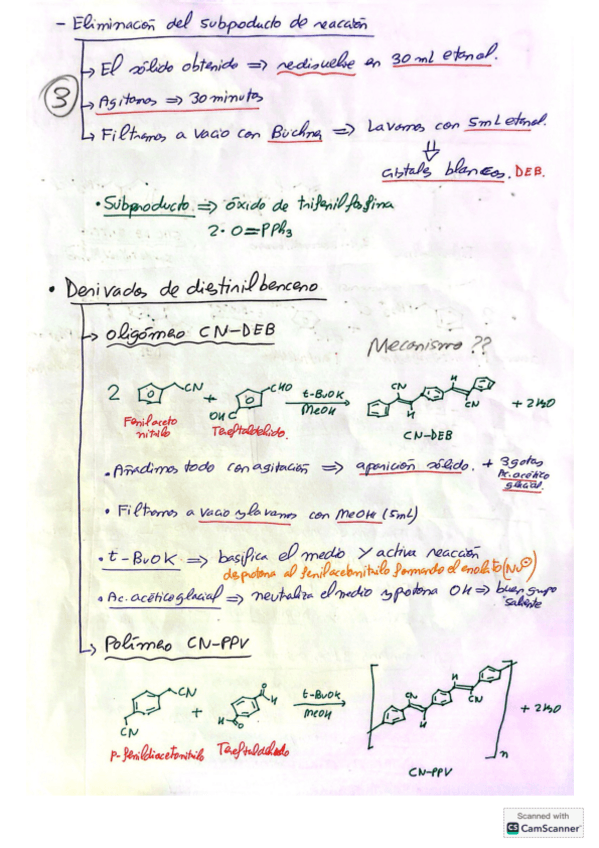 - Eliminación del subproducto de reacción
3
↳ El sólido obtenido ⇒ redisuelve en 30 ml etanol.
↳ Agitamos ⇒ 30 minutos
↳ Filtramos a vacío con Büchner ⇒ Lavamos con 5 mL etanol.
⇓
cristales blancos. DEB.
• Subproducto ⇒ óxido de trifenilfosfina
2·O=PPh3
• Derivados de diestirilbenceno
↳ oligómero CN-DEB
Mecanismo??
2 CN + CHO OHC t-BuOK MeOH CN H H CN + 2H2O
Fenilaceto nitrilo Tereftaldehido. CN-DEB
• Añadimos todo con agitación ⇒ aparición sólido. + 3 gotas Ac. acético glacial.
• Filtramos a vacío y lavamos con MeOH (5mL)
• t-BuOK ⇒ basifica el medio y activa reacción
desprotona al fenilacetonitrilo formando el enolato (Nu⊖)
• Ac. acético glacial ⇒ neutraliza el medio y protona OH ⇒ buen grupo saliente
↳ Polímero CN-PPV
CN CN + O H H O t-BuOK MeOH CN H H CN n + 2H2O
p-fenildiacetonitrilo Tereftaldehido CN-PPV
Scanned with
CS CamScanner